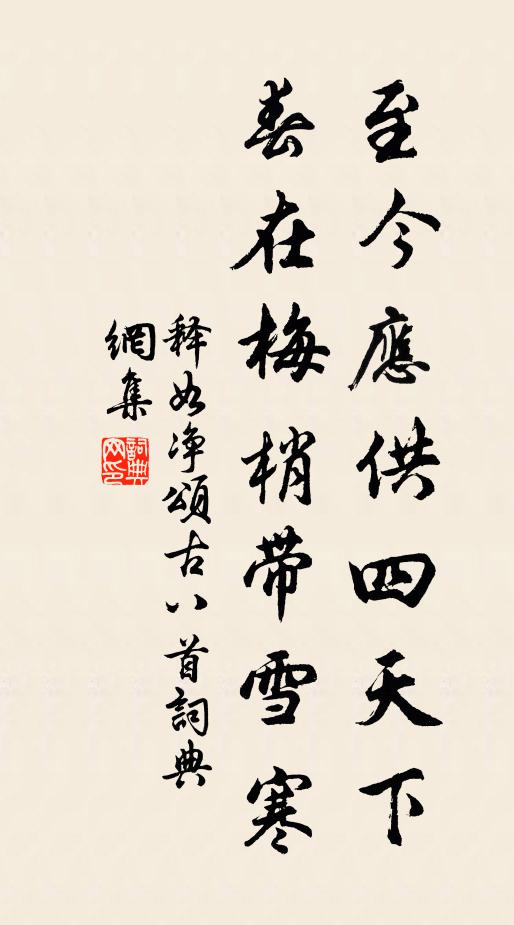 至今應供四天下
春在梅梢帶雪寒
釋如净頌古八首詞典
網集
詞典網印